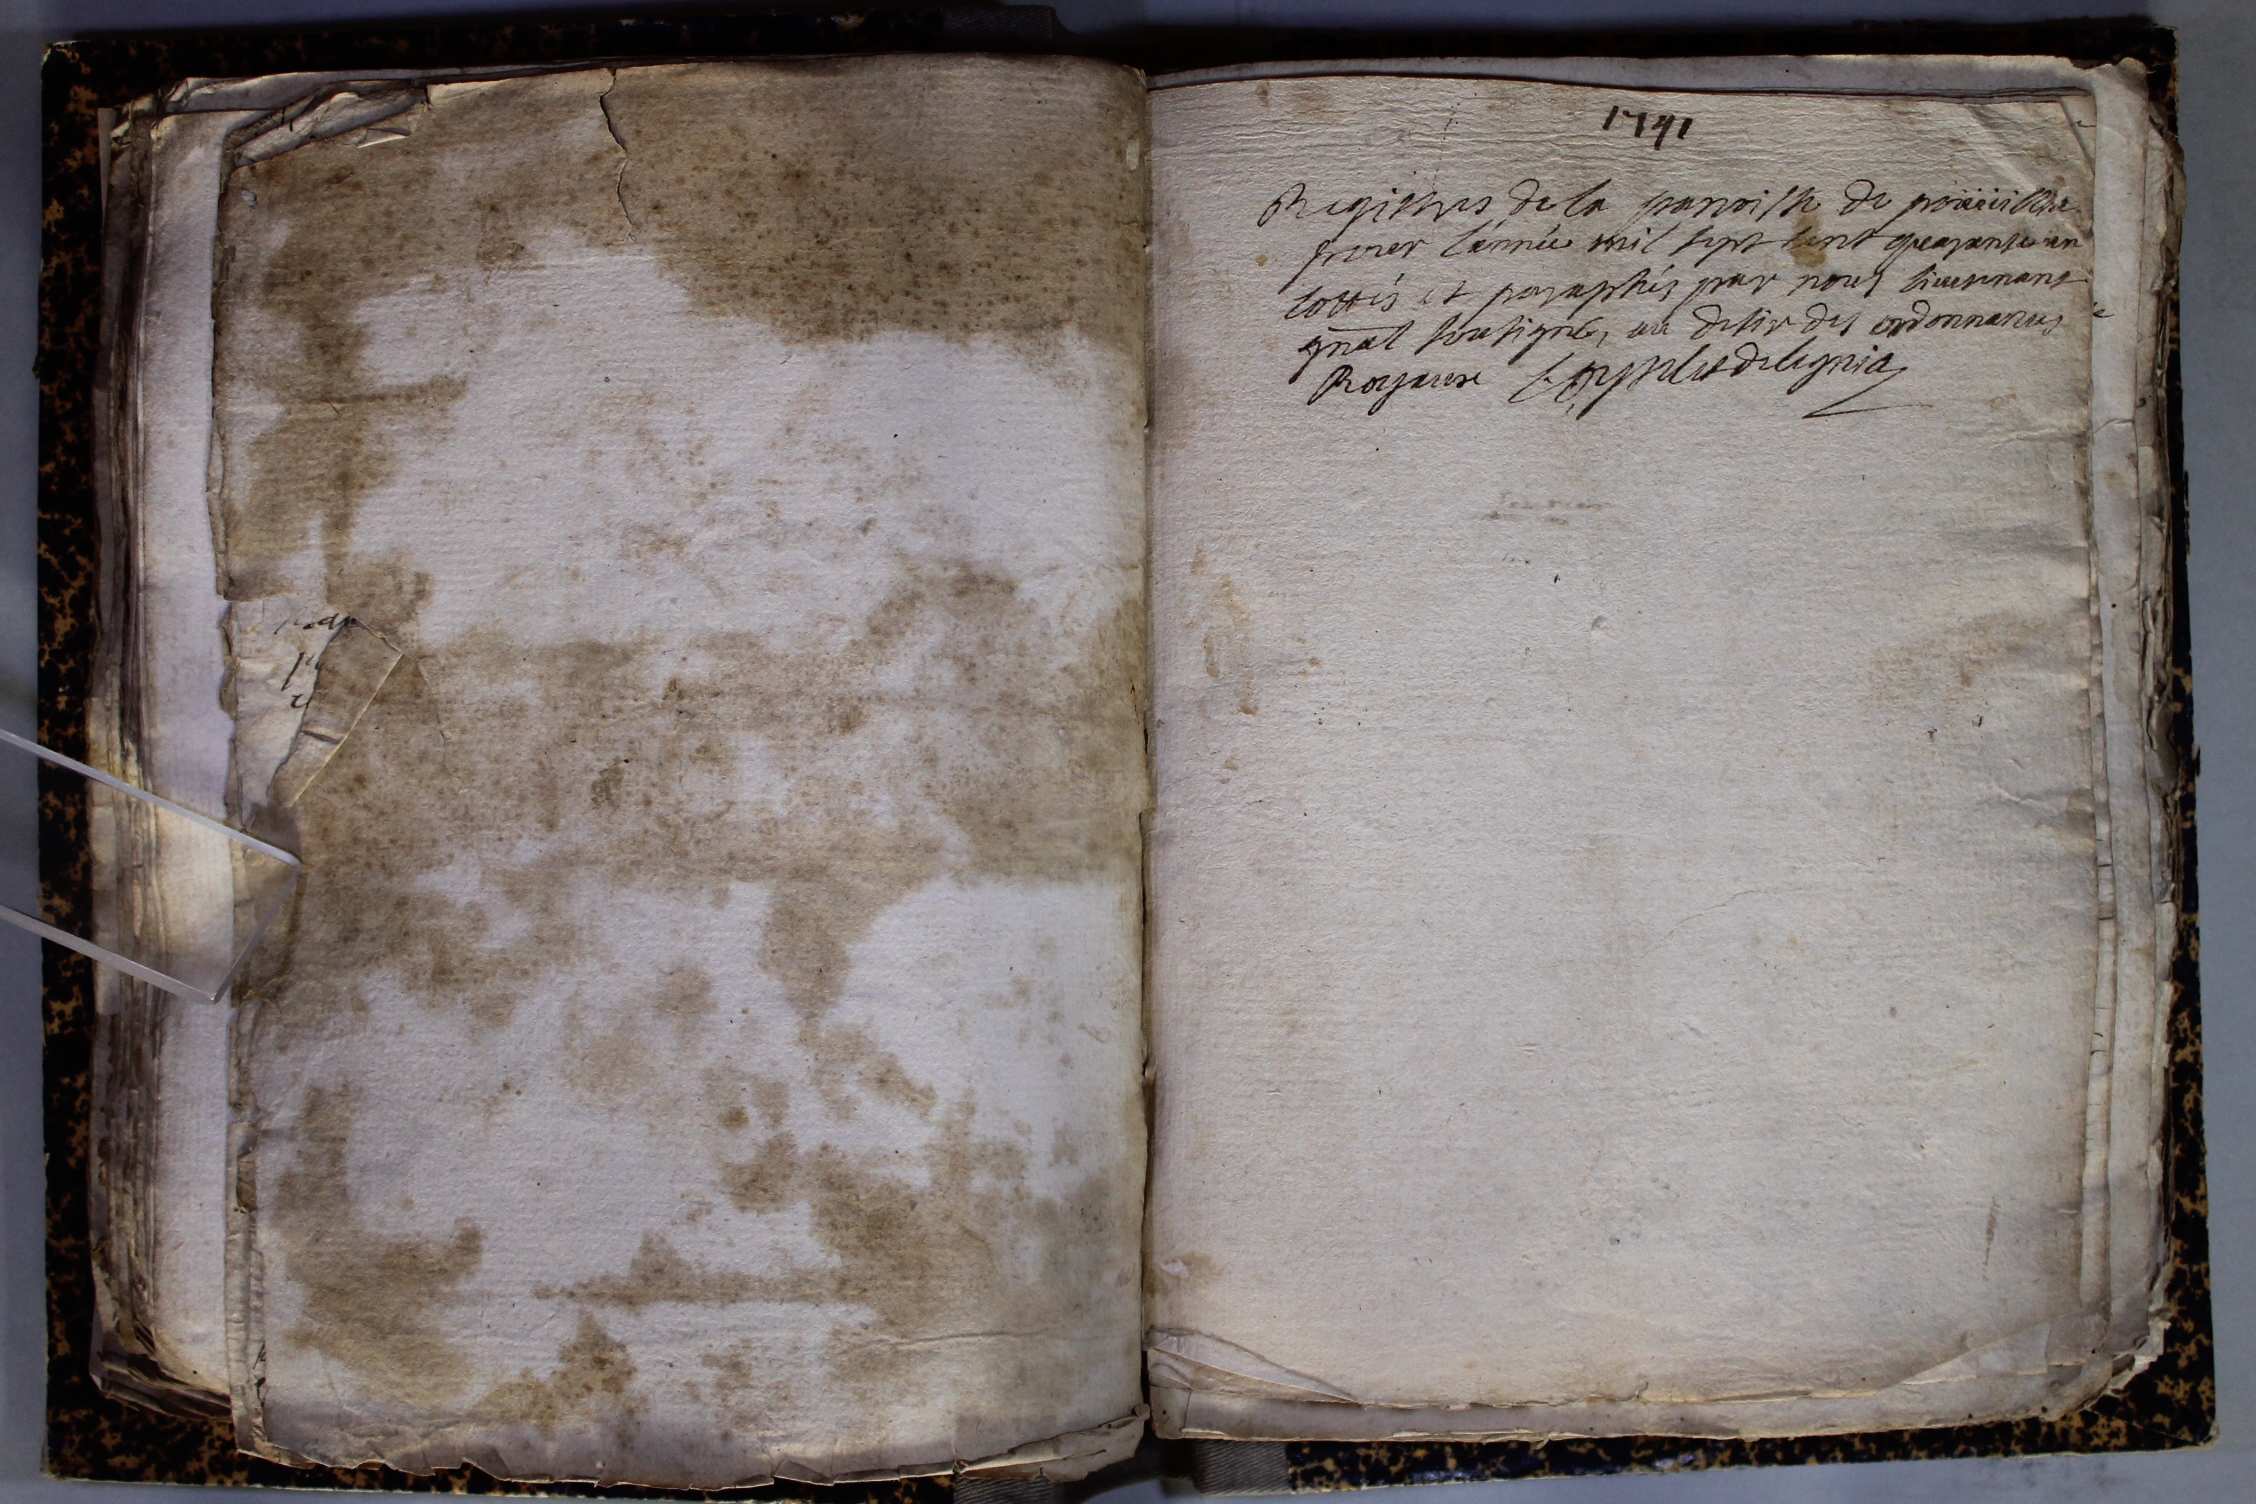 1741
Registres de la parroisse de
pour l'année mil sept cent quarante un
cottés et paraphés par nous lieutenant
gnãl soussigné, au desir des ordonnances
Royaux